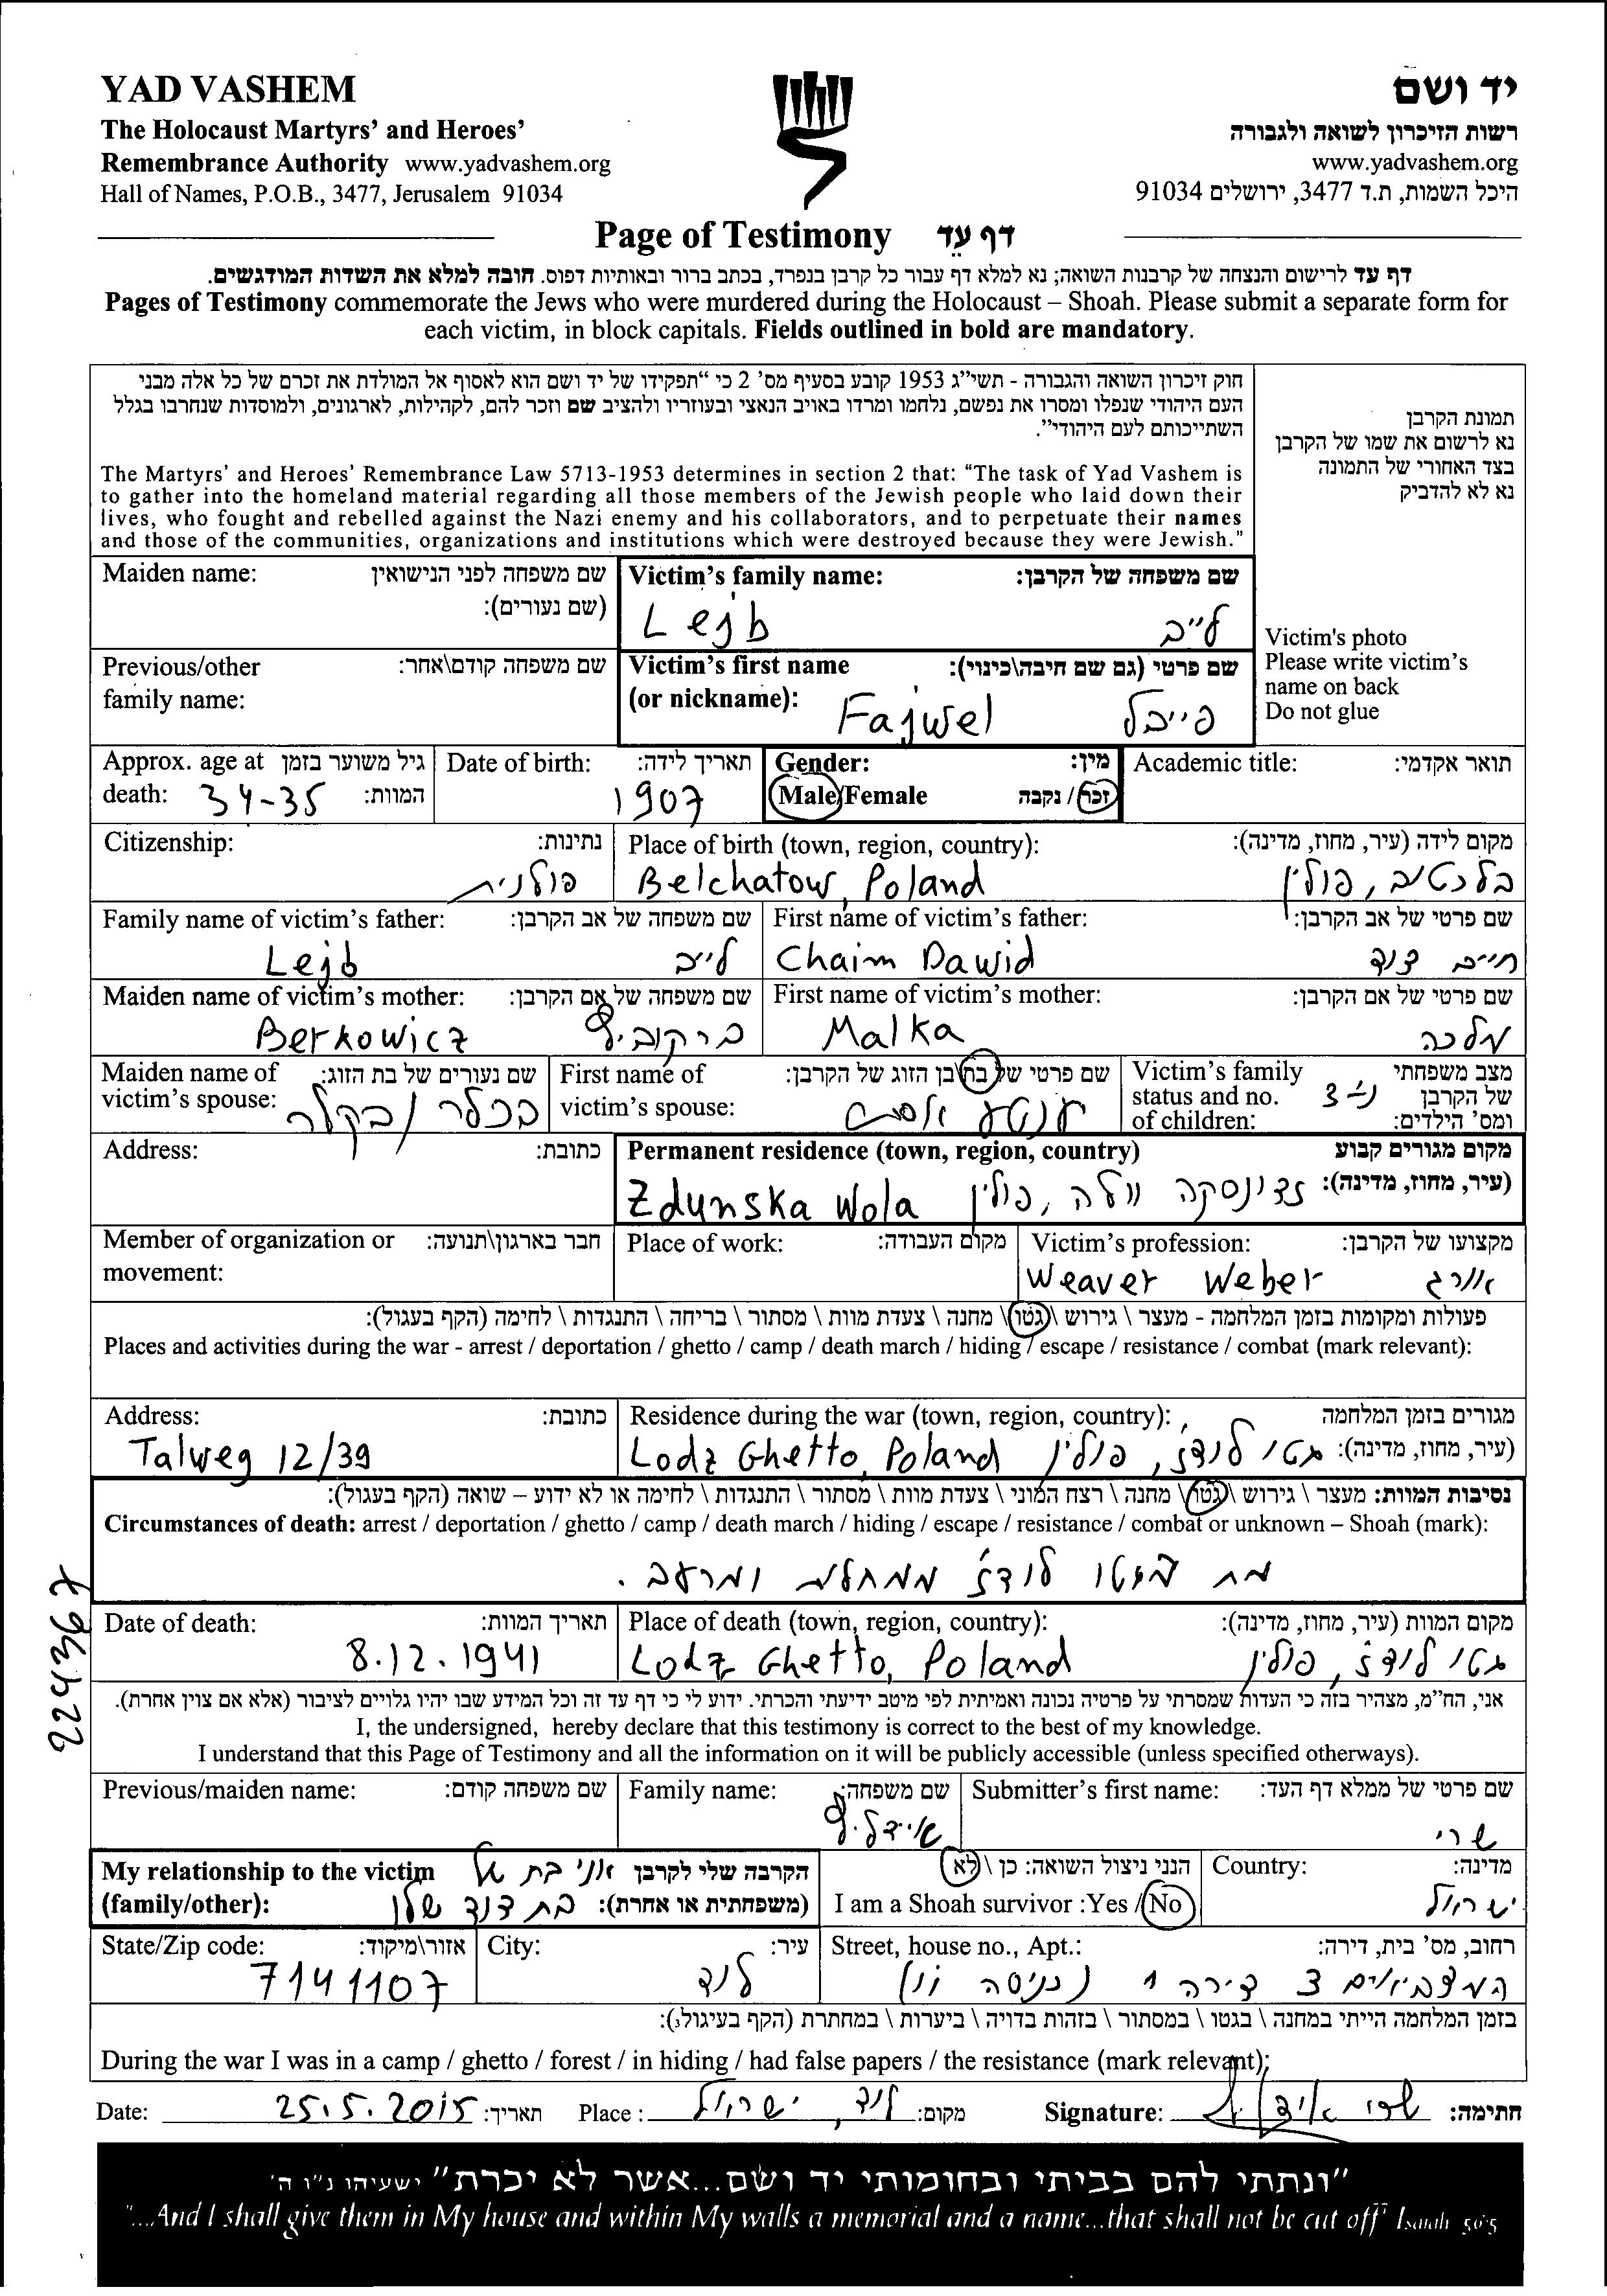 YAD VASHEM
The Holocaust Martyrs' and Heroes'
Remembrance Authority www.yadvashem.org
Hall of Names, P.O.B., 3477, Jerusalem 91034
יד ושם
רשות הזיכרון לשואה ולגבורה
www.yadvashem.org
היכל השמות, ת.ד 3477, ירושלים 91034
Page of Testimony דף עֵד
דף עד לרישום והנצחה של קרבנות השואה; נא למלא דף עבור כל קרבן בנפרד, בכתב ברור ובאותיות דפוס. חובה למלא את השדות המודגשים.
Pages of Testimony commemorate the Jews who were murdered during the Holocaust – Shoah. Please submit a separate form for
each victim, in block capitals. Fields outlined in bold are mandatory.
חוק זיכרון השואה והגבורה - תשי"ג 1953 קובע בסעיף מס' 2 כי "תפקידו של יד ושם הוא לאסוף אל המולדת את זכרם של כל אלה מבני
העם היהודי שנפלו ומסרו את נפשם, נלחמו ומרדו באויב הנאצי ובעוזריו ולהציב שם וזכר להם, לקהילות, לארגונים, ולמוסדות שנחרבו בגלל
השתייכותם לעם היהודי".
The Martyrs' and Heroes' Remembrance Law 5713-1953 determines in section 2 that: "The task of Yad Vashem is
to gather into the homeland material regarding all those members of the Jewish people who laid down their
lives, who fought and rebelled against the Nazi enemy and his collaborators, and to perpetuate their names
and those of the communities, organizations and institutions which were destroyed because they were Jewish."
תמונת הקרבן
נא לרשום את שמו של הקרבן
בצד האחורי של התמונה
נא לא להדביק
Victim's photo
Please write victim's
name on back
Do not glue
Maiden name: שם משפחה לפני הנישואין
(שם נעורים):
Victim's family name: שם משפחה של הקרבן:
Lejb לייב
Previous/other שם משפחה קודם\אחר:
family name:
Victim's first name שם פרטי (גם שם חיבה\כינוי):
(or nickname): Fajwel פייבל
Approx. age at גיל משוער בזמן
death: 34-35 המוות:
Date of birth: תאריך לידה:
1907
Gender: מין:
Male/Female זכר / נקבה
Academic title: תואר אקדמי:
Citizenship: נתינות:
פולנית
Place of birth (town, region, country): מקום לידה (עיר, מחוז, מדינה):
Belchatow, Poland בלכטוב, פולין
Family name of victim's father: שם משפחה של אב הקרבן:
Lejb לייב
First name of victim's father: שם פרטי של אב הקרבן:
Chaim Dawid חיים דוד
Maiden name of victim's mother: שם משפחה של אם הקרבן:
Berkowicz ברקוביץ
First name of victim's mother: שם פרטי של אם הקרבן:
Malka מלכה
Maiden name of שם נעורים של בת הזוג:
victim's spouse:
First name of שם פרטי של בת\בן הזוג של הקרבן:
victim's spouse:
Victim's family מצב משפחתי
status and no. של הקרבן
of children: ומס' הילדים:
נ-3
Address: כתובת:
Permanent residence (town, region, country) מקום מגורים קבוע
(עיר, מחוז, מדינה):
Zdunska Wola זדונסקה וולה, פולין
Member of organization or חבר בארגון\תנועה:
movement:
Place of work: מקום העבודה:
Victim's profession: מקצועו של הקרבן:
Weaver Weber אורג
פעולות ומקומות בזמן המלחמה - מעצר \ גירוש \ גטו \ מחנה \ צעדת מוות \ מסתור \ בריחה \ התנגדות \ לחימה (הקף בעגול):
Places and activities during the war - arrest / deportation / ghetto / camp / death march / hiding / escape / resistance / combat (mark relevant):
Address: כתובת:
Talweg 12/39
Residence during the war (town, region, country): מגורים בזמן המלחמה
(עיר, מחוז, מדינה):
Lodz Ghetto, Poland גטו לודז', פולין
נסיבות המוות: מעצר \ גירוש \ גטו \ מחנה \ רצח המוני \ צעדת מוות \ מסתור \ התנגדות \ לחימה או לא ידוע – שואה (הקף בעגול):
Circumstances of death: arrest / deportation / ghetto / camp / death march / hiding / escape / resistance / combat or unknown – Shoah (mark):
מת בגטו לודז' ממחלות ומרעב.
Date of death: תאריך המוות:
8.12.1941
Place of death (town, region, country): מקום המוות (עיר, מחוז, מדינה):
Lodz Ghetto, Poland גטו לודז', פולין
אני, הח"מ, מצהיר בזה כי העדות שמסרתי על פרטיה נכונה ואמיתית לפי מיטב ידיעתי והכרתי. ידוע לי כי דף עד זה וכל המידע שבו יהיו גלויים לציבור (אלא אם צוין אחרת).
I, the undersigned, hereby declare that this testimony is correct to the best of my knowledge.
I understand that this Page of Testimony and all the information on it will be publicly accessible (unless specified otherways).
Previous/maiden name: שם משפחה קודם:
Family name: שם משפחה:
איידליץ
Submitter's first name: שם פרטי של ממלא דף העד:
שרי
My relationship to the victim הקרבה שלי לקרבן אני בת של
(family/other): (משפחתית או אחרת): בת דוד שלו
הנני ניצול השואה: כן \ לא
I am a Shoah survivor :Yes / No
Country: מדינה:
ישראל
State/Zip code: אזור\מיקוד:
7141107
City: עיר:
לוד
Street, house no., Apt.: רחוב, מס' בית, דירה:
3 דירה 1
בזמן המלחמה הייתי במחנה \ בגטו \ במסתור \ בזהות בדויה \ ביערות \ במחתרת (הקף בעיגול):
During the war I was in a camp / ghetto / forest / in hiding / had false papers / the resistance (mark relevant):
Date: 25.5.2015 תאריך: Place : לוד, ישראל מקום: Signature: שרי חתימה:
"ונתתי להם בביתי ובחומותי יד ושם...אשר לא יכרת" ישעיהו נ"ו ה'
"...And I shall give them in My house and within My walls a memorial and a name...that shall not be cut off" Isaiah 56:5
224367